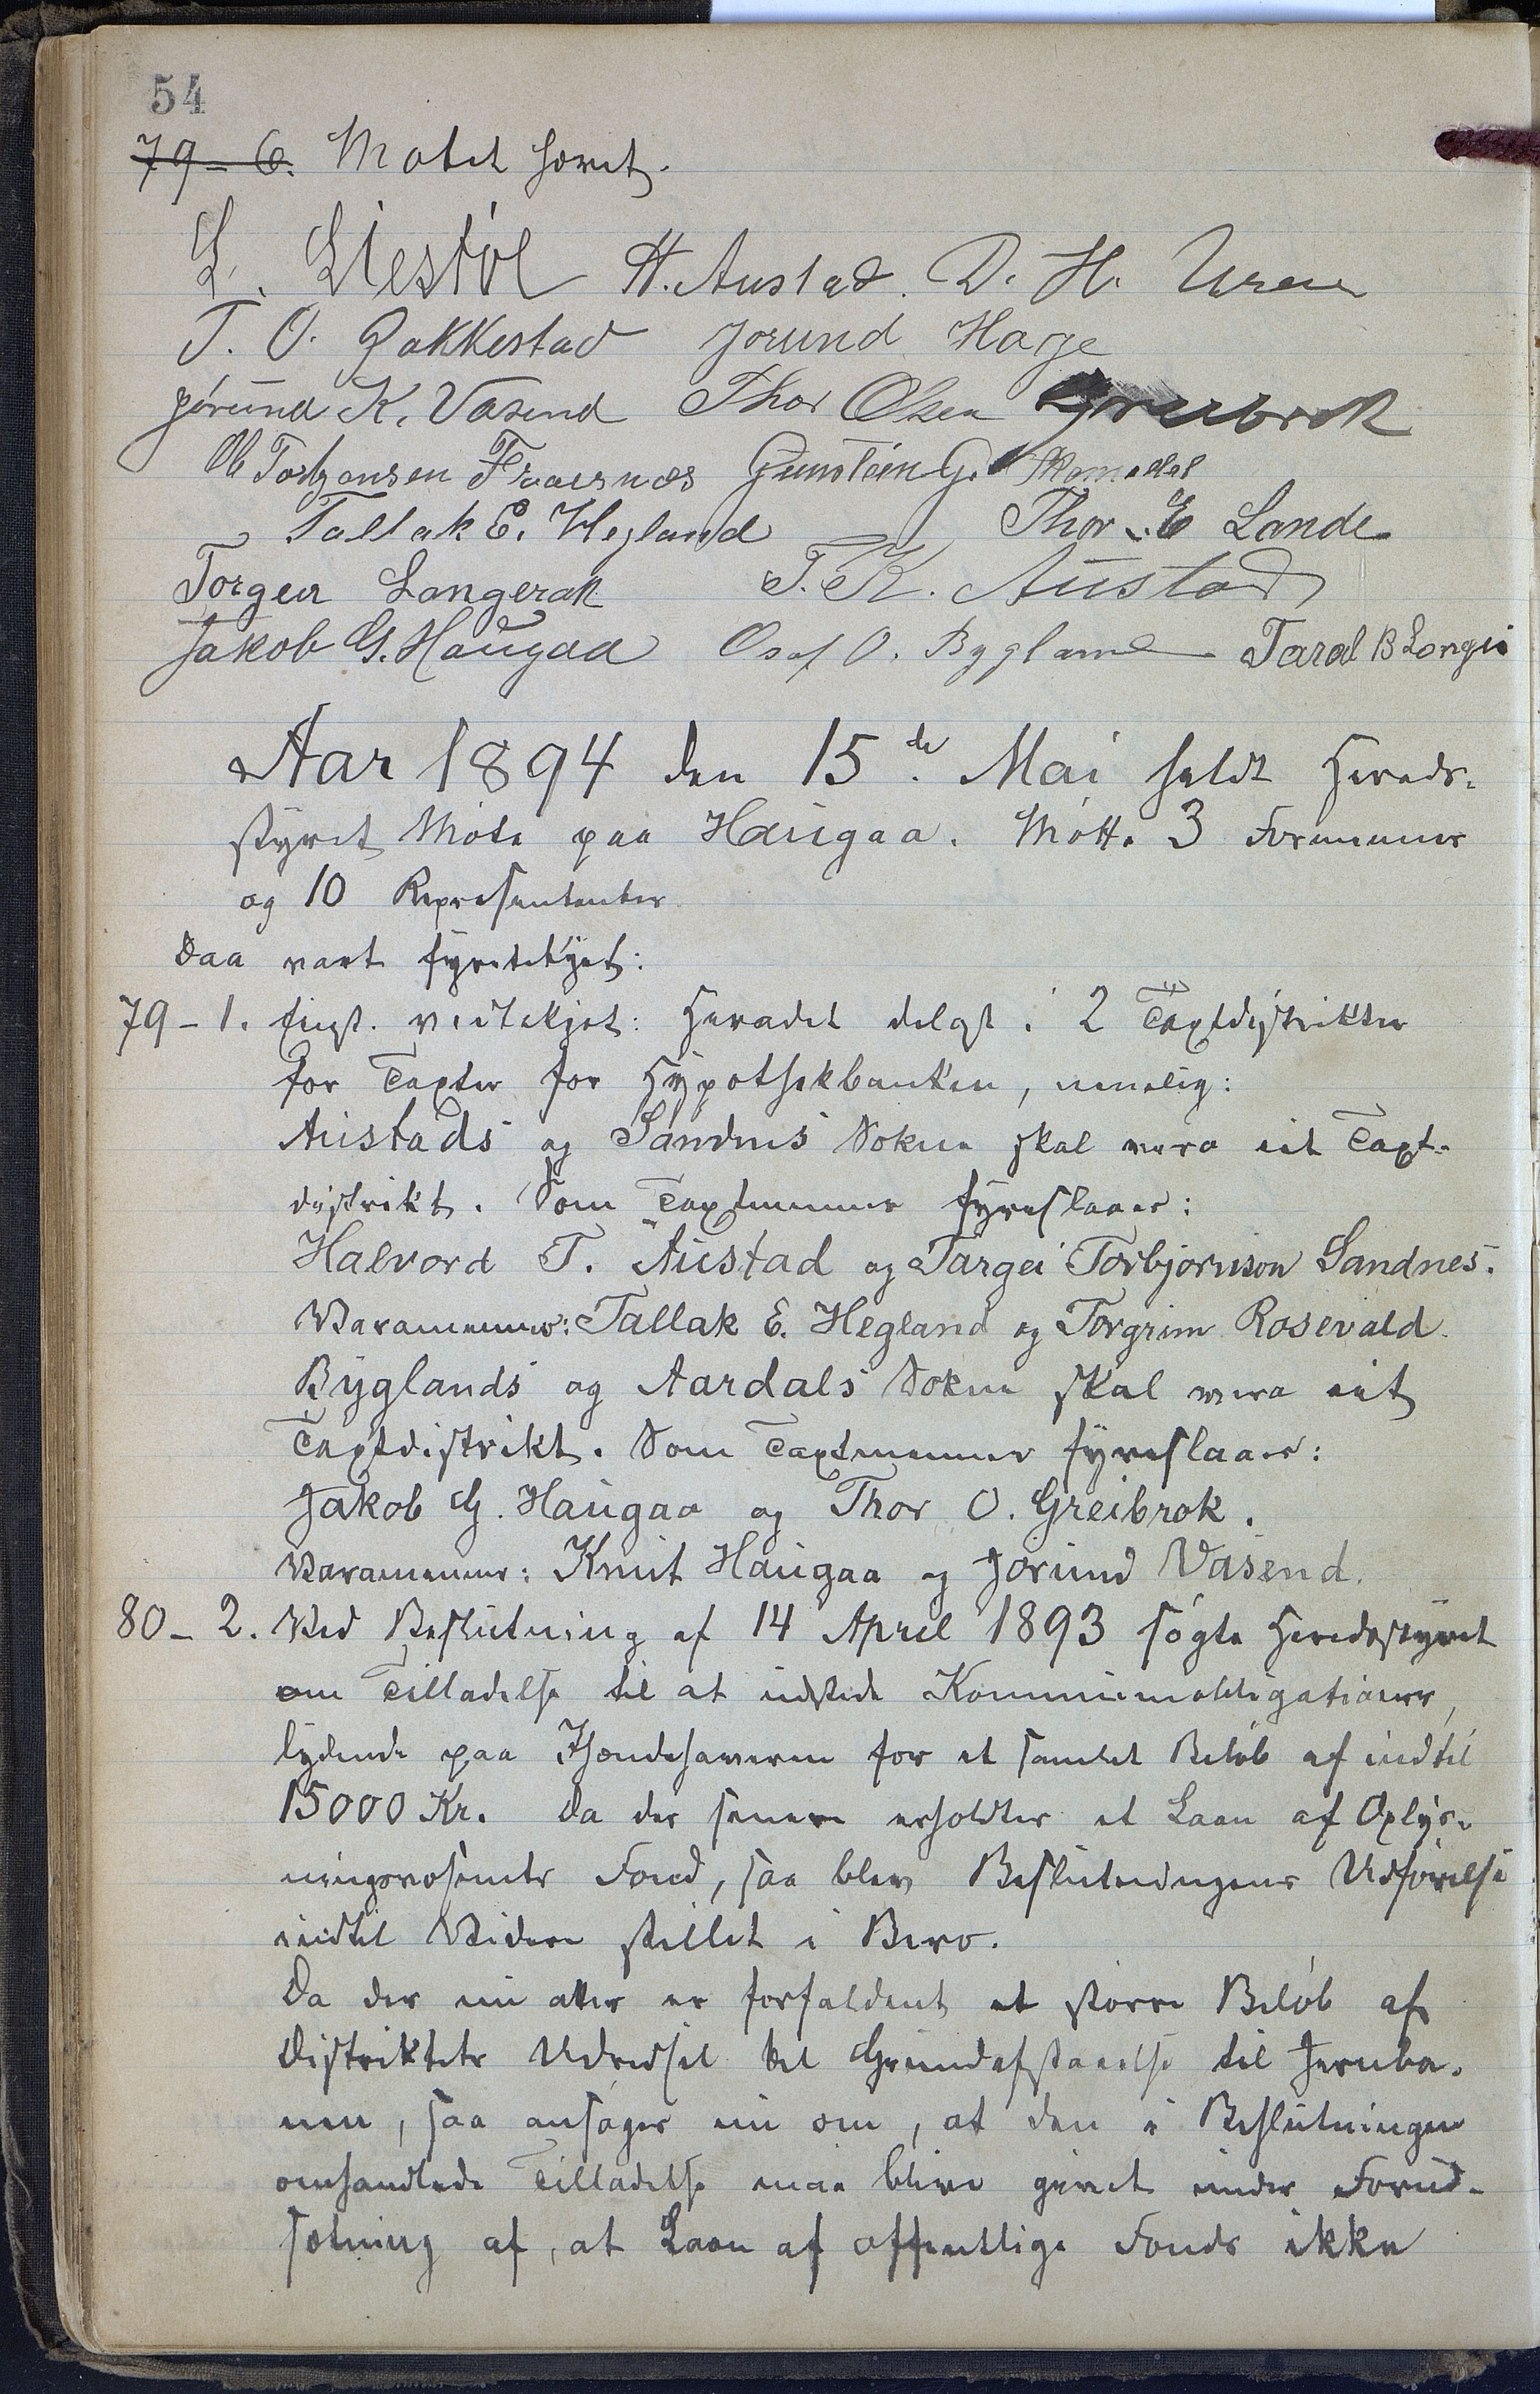 54
79-6. Møtet hevet.
L. Liestøl H. Austad. D. H. Uren
T. O. Gakkestad Jorund Hage
Jørund K. Vasend Thor Olsen Greibrok
Ole Torbjønsen Froisnæs Gunstein G. Skomedal
Tallak E. Hegland Thor E Lande
Torgeir Langerak T. K. Austad
Jakob G. Haugaa Osuf O. Bygland Taral B Longei
Aar 1894 den 15de. Mai heldt Hereds-
styret Møte paa Haugaa. Møtte 3 Formenner
og 10 Represententer.
Daa vart fyretekjet:
79-1. Eingt. veitekjet: Heradet delast i 2 Taxtdistrikter
for Taxter for Hypothekbanken, nemelig:
Austads og Sandnes Sokne skal vera eit Taxt-
distrikt. Som Taxtmenner fyreslaaes:
Halvord T. Austad og Targei Torbjørnson Sandnes.
Varamenner: Tallak E. Hegland og Torgrim Rosevald.
Byglands og Aardals Sokne skal vera eit
Taxtdistrikt. Som Taxtmenner fyreslaaes:
Jakob G. Haugaa og Thor O. Greibrok.
Varamenner: Knut Haugaa og Jørund Vasend.
80-2. Ved Beslutning af 14 April 1893 søgte Heredsstyret
om Tilladelse til at udstede Kommuneobligationer,
lydende paa Ihændehaveren for et samlet Beløb af indtil
15000 Kr. Da der senere erholdtes et Laan af Oplys-
ningsvesenets Fond, saa blev Beslutningens Udførelse
indtil Videre stillet i Bero.
Da der nu atter er forfaldent et større Beløb af
Distriktets Udredsel til Grundafstaaelse til Jernba-
nen, saa ansøges nu om, at den i Beslutningen
omhandlede Tilladelse maa blive givet under Forud-
sætning af, at Laan af offentlige Fonds ikke